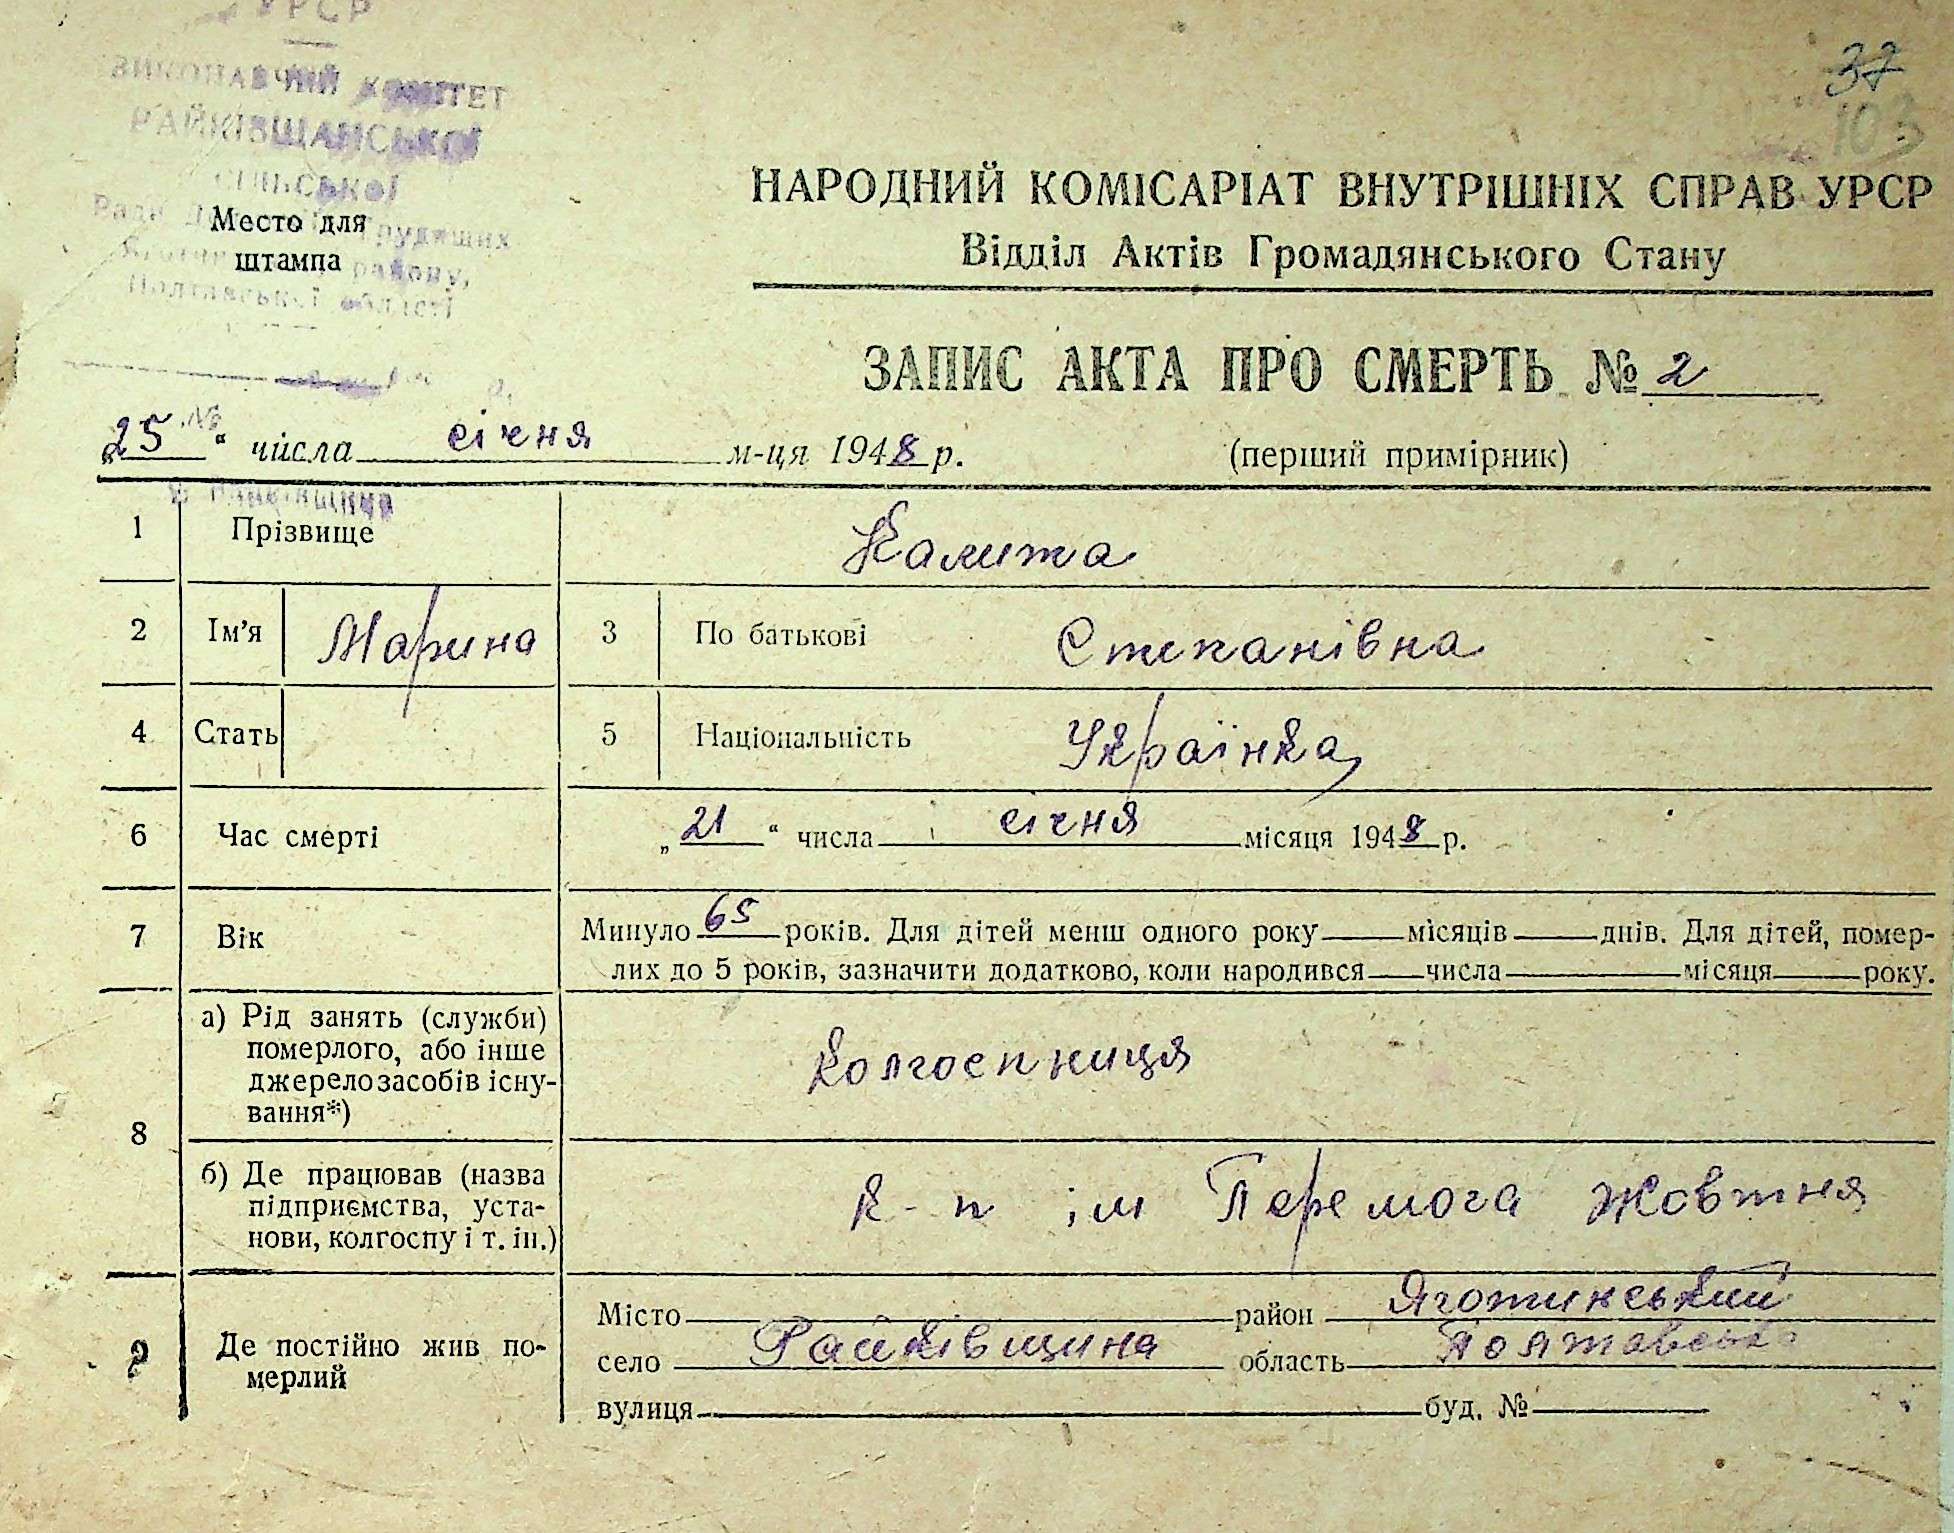 УРСР
ВИКОНАВЧИЙ КОМІТЕТ
РАЙКІВЩАНСЬКОЇ
СІЛЬСЬКОЇ
Ради Трудящих
району,
Полтавської області
Место для
штампа
37
103
НАРОДНИЙ КОМІСАРІАТ ВНУТРІШНІХ СПРАВ УРСР
Відділ Актів Громадянського Стану
ЗАПИС АКТА ПРО СМЕРТЬ № 2
№
„25“ числа січня м-ця 1948 р. (перший примірник)
с. Райківщина
1 Прізвище Калита
2 Ім'я Марина 3 По батькові Степанівна
4 Стать 5 Національність Українка
6 Час смерті „21“ числа січня місяця 1948 р.
7 Вік Минуло 65 років. Для дітей менш одного року місяців днів. Для дітей, помер-
лих до 5 років, зазначити додатково, коли народився числа місяця року.
8 а) Рід занять (служби)
померлого, або інше
джерело засобів існу-
вання*)
колгоспниця
б) Де працював (назва
підприємства, уста-
нови, колгоспу і т. ін.)
к-п ім Перемога Жовтня
9 Де постійно жив по-
мерлий
Місто район Яготинський
село Райківщина область Полтавська
вулиця буд. №